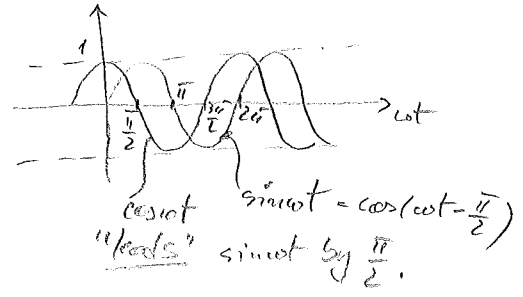 1
π/2 π 3π/2 2π ωt
cosωt sinωt = cos(ωt - π/2)
"leads" sinωt by π/2.